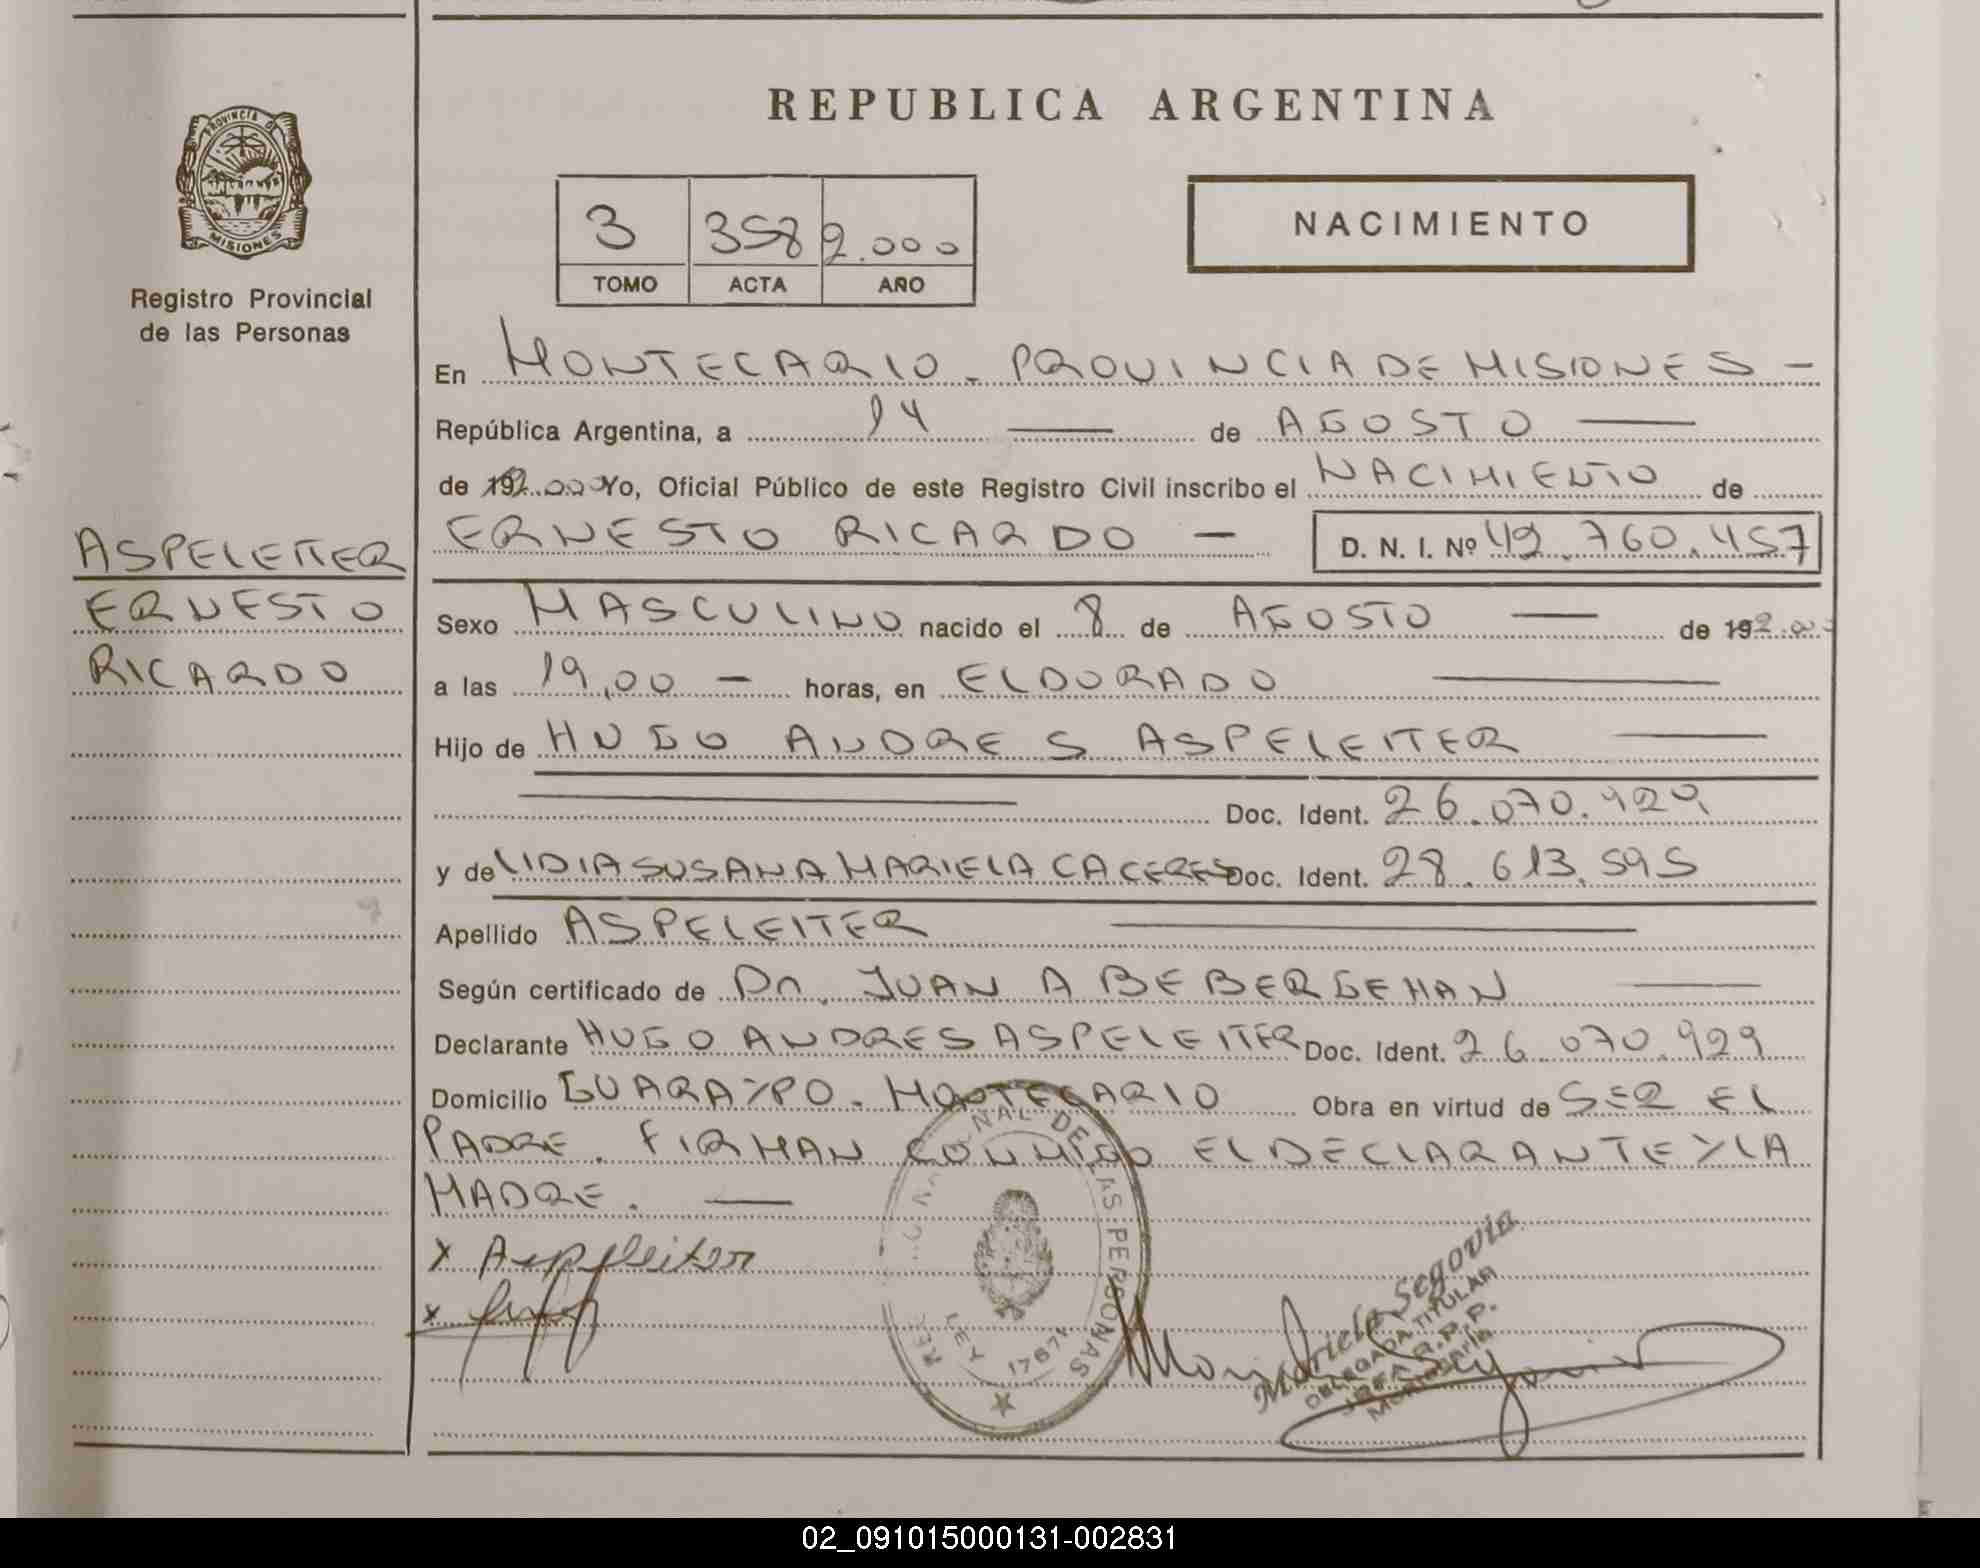 PROVINCIA DE
MISIONES
Registro Provincial
de las Personas
ASPELEITER
ERNESTO
RICARDO
REPUBLICA ARGENTINA
3 358 2.000
TOMO ACTA AÑO
NACIMIENTO
En MONTECARLO. PROVINCIA DE MISIONES —
República Argentina, a 14 — de AGOSTO —
de 192.000 Yo, Oficial Público de este Registro Civil inscribo el NACIMIENTO de
ERNESTO RICARDO — D. N. I. Nº 42.760.457
Sexo MASCULINO nacido el 8 de AGOSTO — de 192.000
a las 19,00 — horas, en ELDORADO —
Hijo de HUGO ANDRES ASPELEITER —
Doc. Ident. 26.070.929
y de LIDIA SUSANA MARIELA CACERES Doc. Ident. 28.613.595
Apellido ASPELEITER —
Según certificado de Dr. JUAN A BEBERGEMAN —
Declarante HUGO ANDRES ASPELEITER Doc. Ident. 26.070.929
Domicilio GUARAYPO. MONTECARLO Obra en virtud de SER EL
PADRE. FIRMAN CONMIGO EL DECLARANTE Y LA
MADRE. —
x Aspeleiter
x
NAL DE LAS PERSONAS
LEY 17671
Mariela Segovia
DELEGADA TITULAR
Montecarlo
02_091015000131-002831